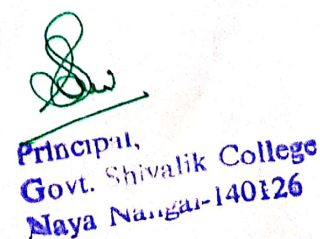 Principal,
Govt. Shivalik College
Naya Nangal-140126